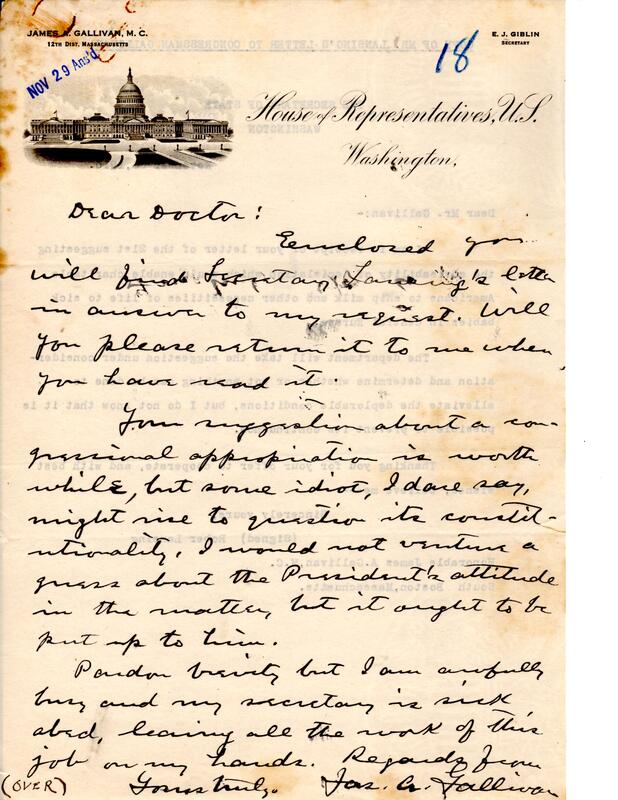 JAMES A. GALLIVAN, M. C.
12TH DIST. MASSACHUSETTS
E. J. GIBLIN
SECRETARY
NOV 29 Ans'd
18
House of Representatives, U.S.
Washington,
Dear Doctor:
Eenclosed you
will find Secretary Lansing's letter
in answer to my request. Will
you please return it to me when
you have read it.
Your suggestion about a con-
gressional appropriation is worth
while, but some idiot, I dare say,
might rise to question its constit-
utionality. I would not venture a
guess about the President's attitude
in the matter, but it ought to be
put up to him.
Pardon brevity but I am awfully
busy and my secretary is sick
abed, leaving all the work of this
job on my hands. Regards from
Yours truly. Jas. A. Gallivan
(OVER)